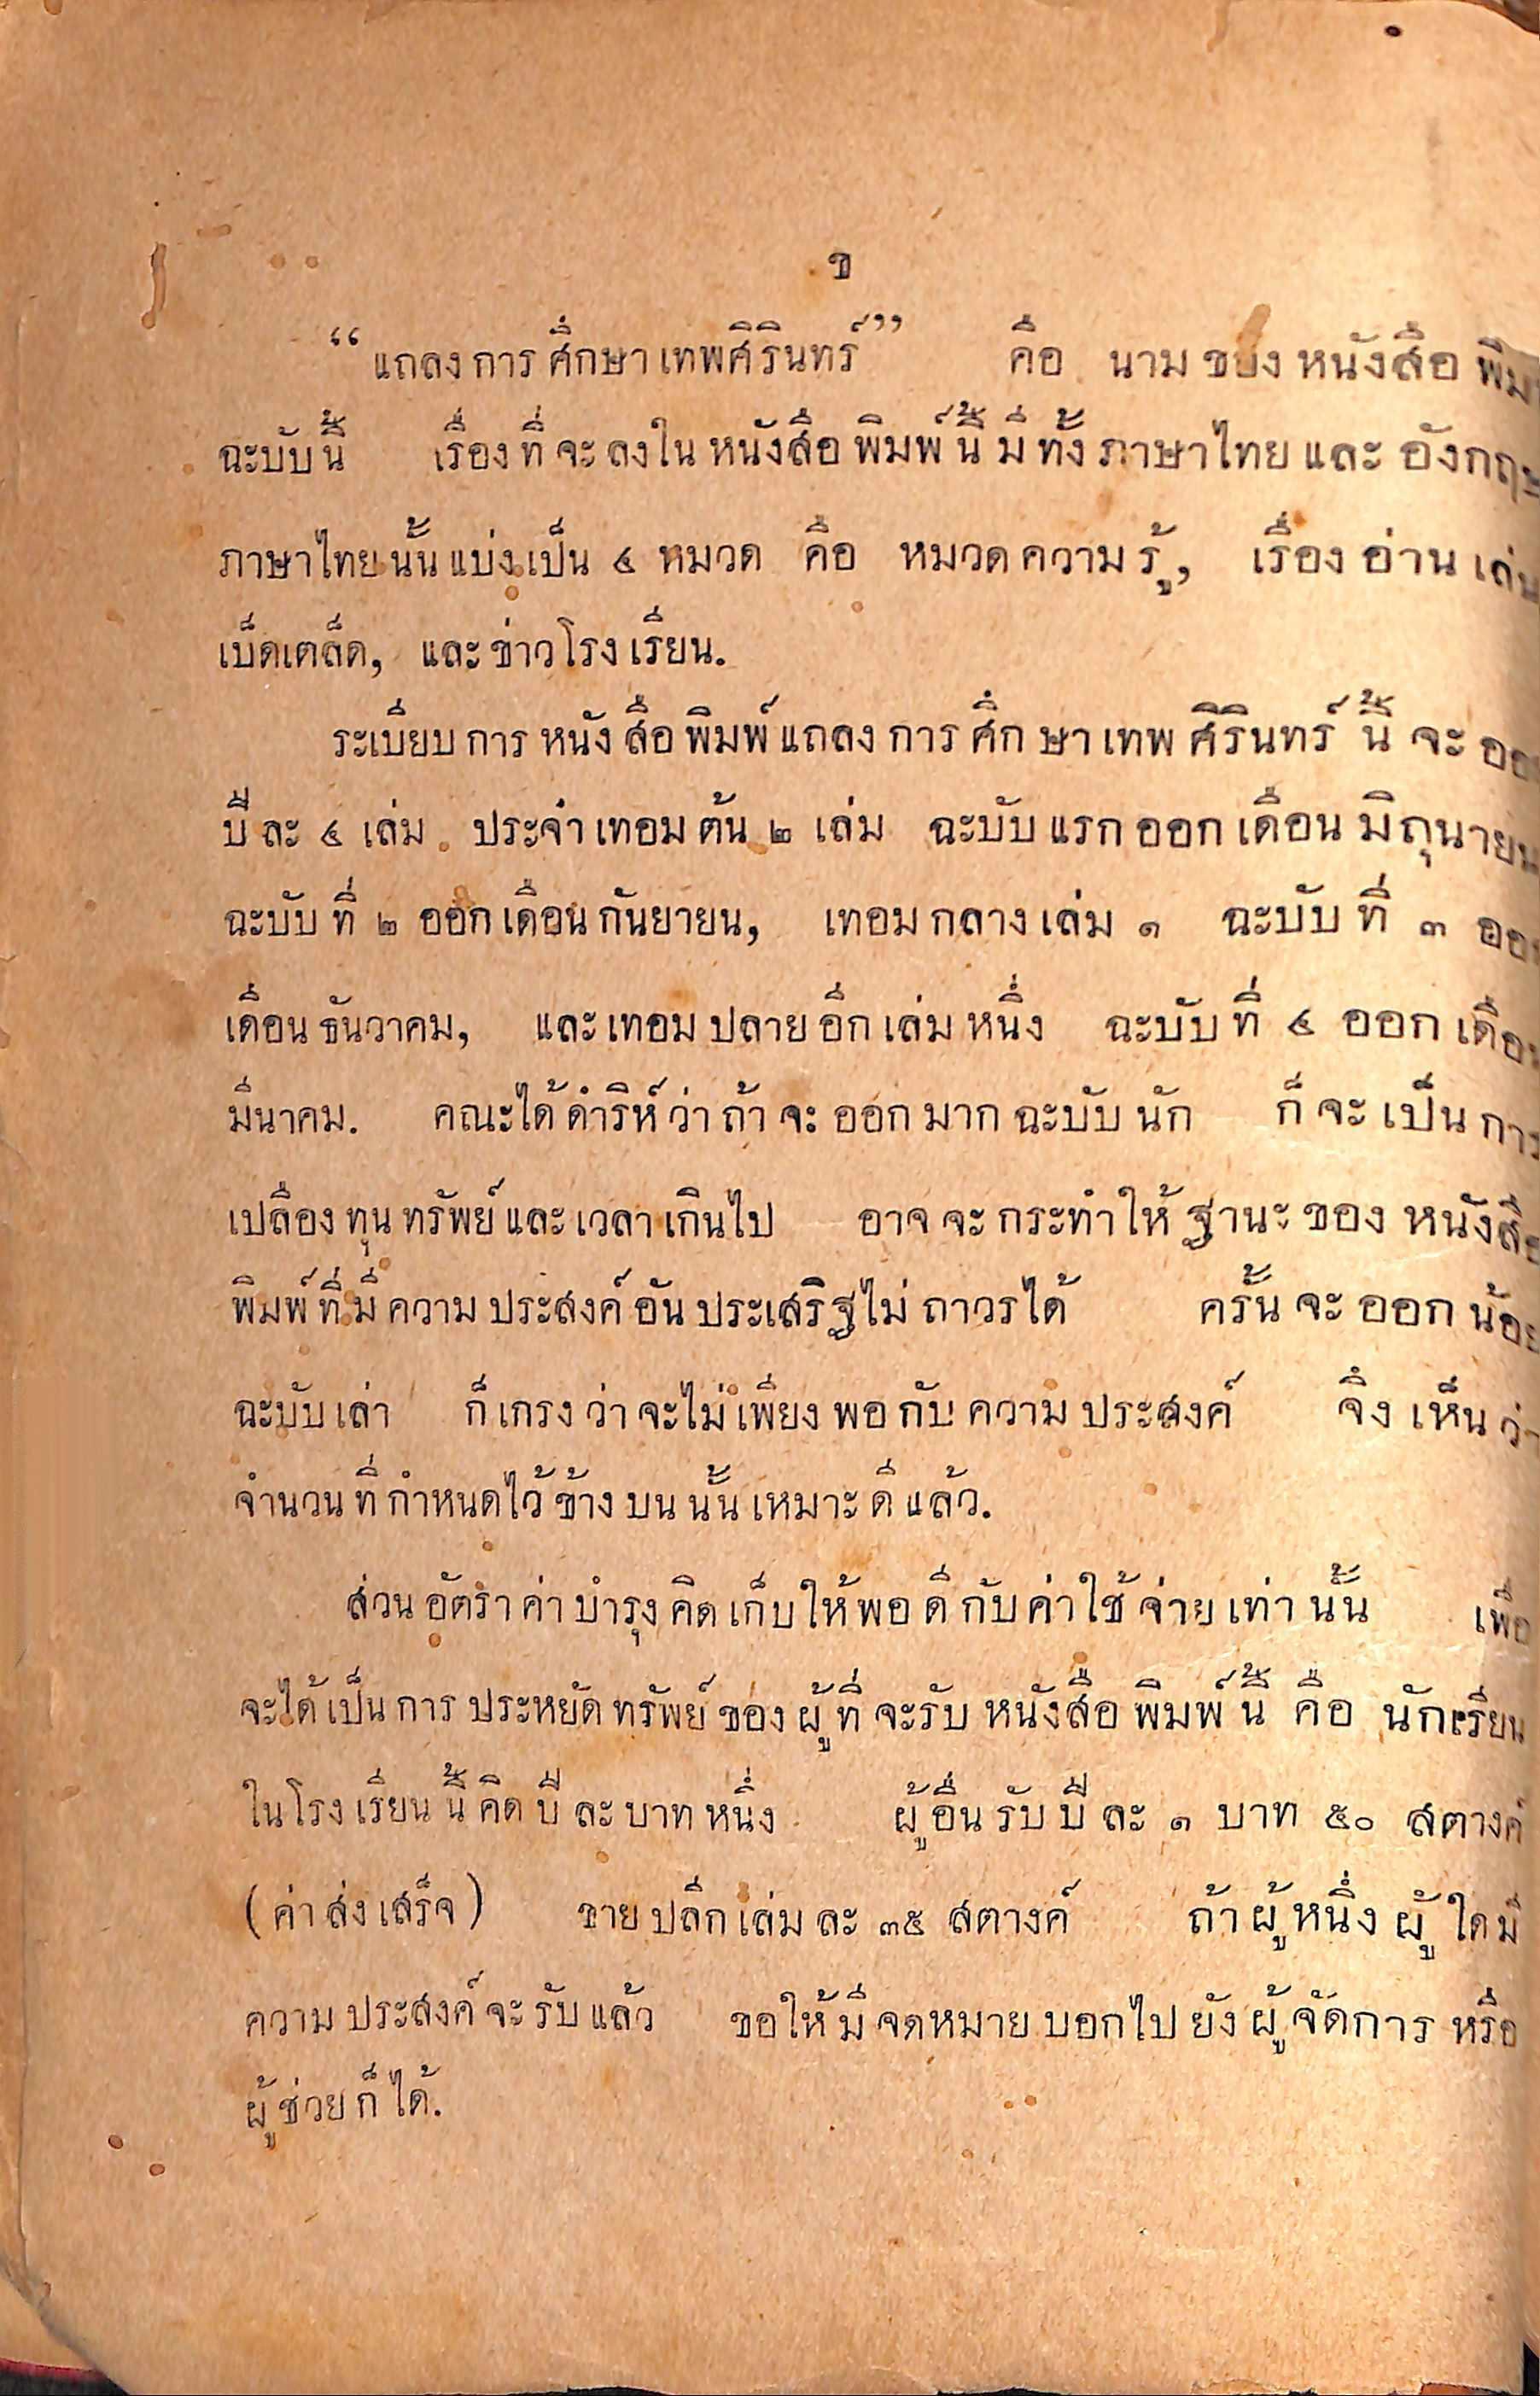 ข
“แถลงการศึกษาเทพศิรินทร์” คือ นามของหนังสือพิมพ์
ฉะบับนี้ เรื่องที่จะลงในหนังสือพิมพ์นี้มีทั้งภาษาไทยและอังกฤษ
ภาษาไทยนั้นแบ่งเป็น ๔ หมวด คือ หมวดความรู้, เรื่องอ่านเล่น
เบ็ดเตล็ด, และข่าวโรงเรียน.
ระเบียบการหนังสือพิมพ์แถลงการศึกษาเทพศิรินทร์นี้ จะออก
ปีละ ๔ เล่ม. ประจำเทอมต้น ๒ เล่ม ฉะบับแรกออกเดือนมิถุนายน
ฉะบับที่ ๒ ออกเดือนกันยายน, เทอมกลางเล่ม ๑ ฉะบับที่ ๓ ออก
เดือนธันวาคม, และเทอมปลายอีกเล่มหนึ่ง ฉะบับที่ ๔ ออกเดือน
มีนาคม. คณะได้ดำริห์ว่าถ้าจะออกมากฉะบับนัก ก็จะเป็นการ
เปลืองทุนทรัพย์และเวลาเกินไป อาจจะกระทำให้ฐานะของหนังสือ
พิมพ์ที่มีความประสงค์อันประเสริฐไม่ถาวรได้ ครั้นจะออกน้อย
ฉะบับเล่า ก็เกรงว่าจะไม่เพียงพอกับความประสงค์ จึงเห็นว่า
จำนวนที่กำหนดไว้ข้างบนนั้นเหมาะดีแล้ว.
ส่วนอัตราค่าบำรุงคิดเก็บให้พอดีกับค่าใช้จ่ายเท่านั้น เพื่อ
จะได้เป็นการประหยัดทรัพย์ของผู้ที่จะรับหนังสือพิมพ์นี้ คือ นักเรียน
ในโรงเรียนนี้คิดปีละบาทหนึ่ง ผู้อื่นรับปีละ ๑ บาท ๕๐ สตางค์
(ค่าส่งเสร็จ) ขายปลีกเล่มละ ๓๕ สตางค์ ถ้าผู้หนึ่งผู้ใดมี
ความประสงค์จะรับแล้ว ขอให้มีจดหมายบอกไปยังผู้จัดการ หรือ
ผู้ช่วยก็ได้.